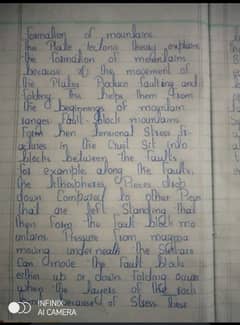 formation of mountains
the Plate tectonic theory explains
the formation of mountains
because of the movement of
the Plates faulting and
folding this helps them from
the beginnings of mountain
ranges Fault-Block mountains
Form when tensional Stress
in the Crust Sit into
blocks between the faults
for example along the faults,
the lithosphere Pieces drop
down Compared to other Pieces
that are left Standing that
then form the fault block mo
untains. Pressure from magma
moving underneath the Surface
Can move the fault blocks
either up or down folding occurs
when the layers of the rock
because of Stress these
INFINIX
AI CAMERA